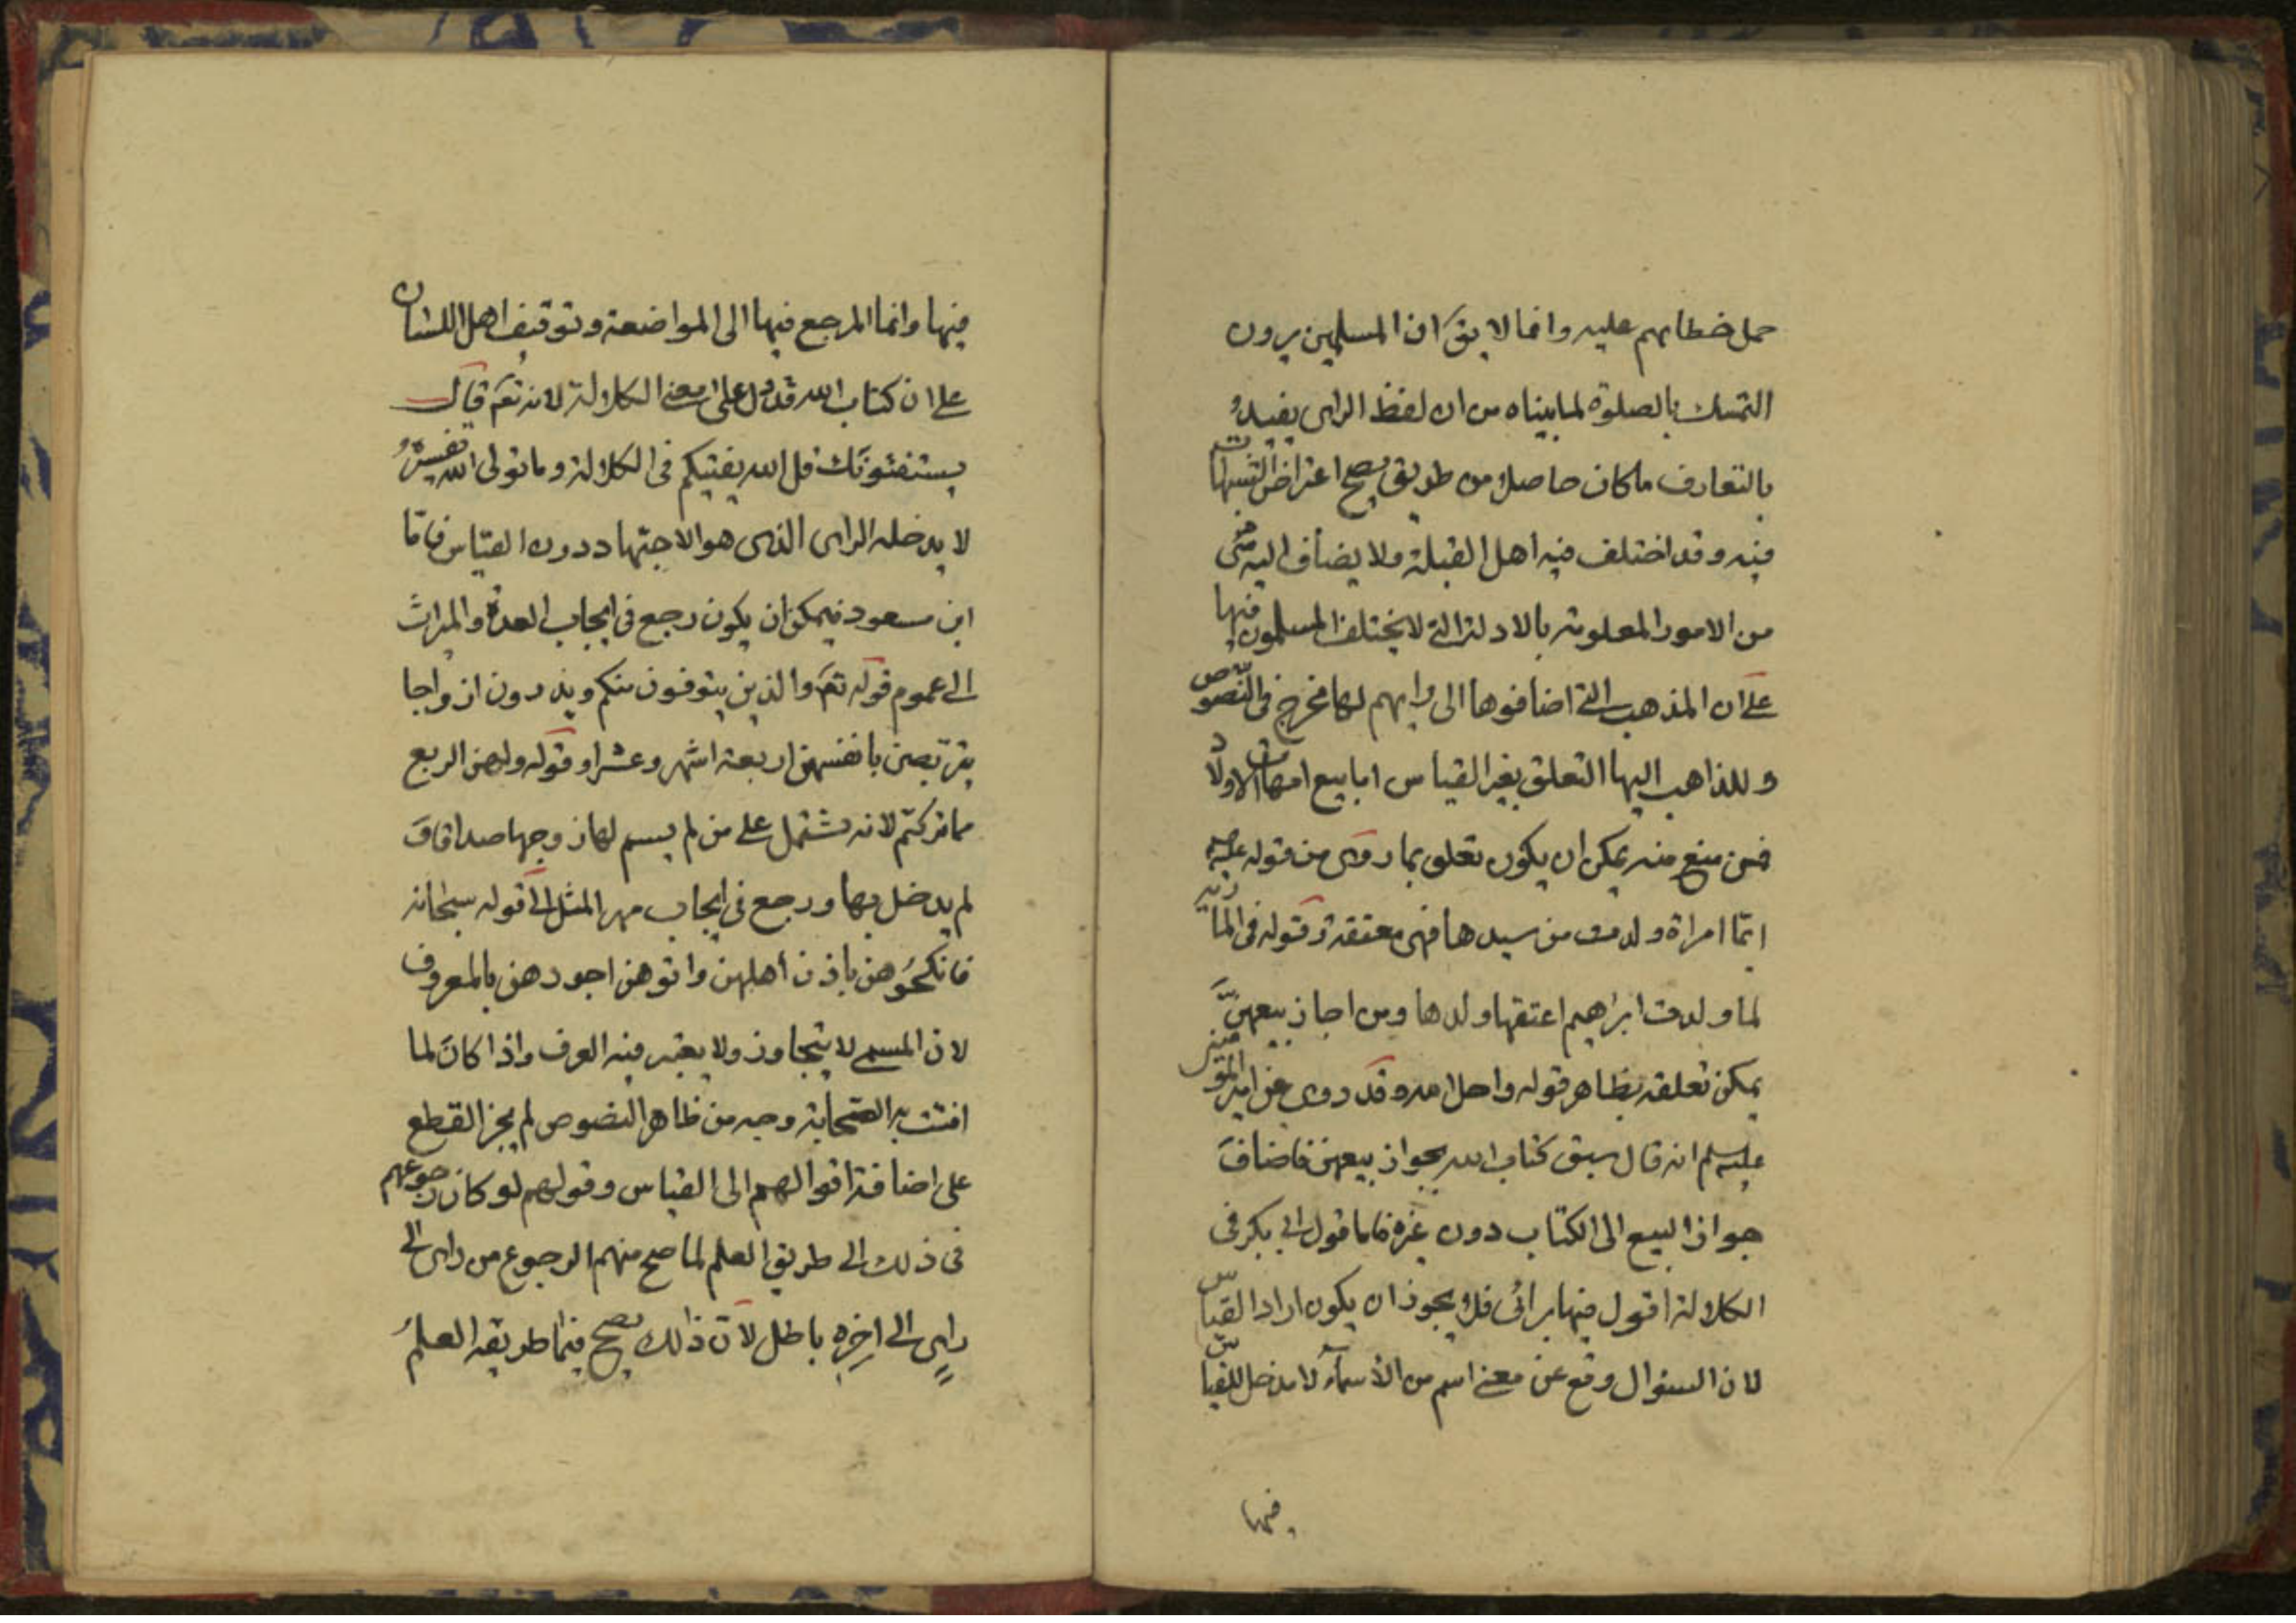 حمل خطابهم عليه وانما لا يقَ ان المسلمين يرون
التمسك بالصلوة لما بيناه من ان لفظ الراى يفيد
بالتعارف ما كان حاصلا من طريق يصح اعتراض الشبهات
فيه وقد اختلف فيه اهل القبلة ولا يضاف اليه شئ
من الامور المعلومة بالادلة التى لا يختلف المسلمون فيها
على ان المذهب التى اضافوها الى رايهم لها مخرج فى النصوص
وللذاهب اليها التعلق بغير القياس اما بيع امهات الاولاد
فمن منع منه يمكن ان يكون تعلق بما روى من قوله عليه
ايما امراة ولدت من سيدها فهى معتقة وقوله فى الماريه
لما ولدت ابراهيم اعتقها ولدها ومن اجاز بيعهنّ
يمكن تعلقه بظاهر قوله واحل الله وقد روى عن امير المؤمنين
عليه سلم انه قال سبق كتاب الله بجواز بيعهن فاضاف
جواز البيع الى الكتاب دون غيره فاما قول ابى بكر فى
الكلالة اقول فيها برائى فلا يجوز ان يكون اراد القياس
لان السئوال وقع عن معنى اسم من الأسمآء لا مدخل للقياس
فيها
فيها وانما المرجع فيها الى المواضعة وتوقيف اهل اللسان
على ان كتاب الله قد دل على معنى الكلالة لانه تعَم قال
يستفتونك قل الله يفتيكم فى الكلالة وما تولى الله تفسيره
لا يدخله الراى الذى هو الاجتهاد دون القياس فامّا
ابن مسعود فيمكن ان يكون رجع فى ايجاب العدة والميراث
الى عموم قوله تعَم والذين يتوفون منكم ويذرون ازواجا
يتربصن بانفسهن اربعة اشهر وعشرا وقوله ولهن الربع
مما تركتم لانه يشتمل على من لم يسم لها زوجها صداقا وَ
لم يدخل بها ورجع فى ايجاب مهر المثل الى قوله سبحانه
فانكحُوهن باذن أهلهن واتوهن اجورهن بالمعروف
لان المسمى لا يتجاوز ولا يعتبر فيه العرف واذا كان لما
افتت به الصّحابة وجه من ظاهر النصوص لم يجز القطع
على اضافة اقوالهم الى القياس وقولهم لو كان رجوعهم
فى ذلك الى طريق العلم لما صح منهم الرجوع من راى الى
راىٍ الى اخِره باطل لأن ذالك يصح فيما طريقه العلم